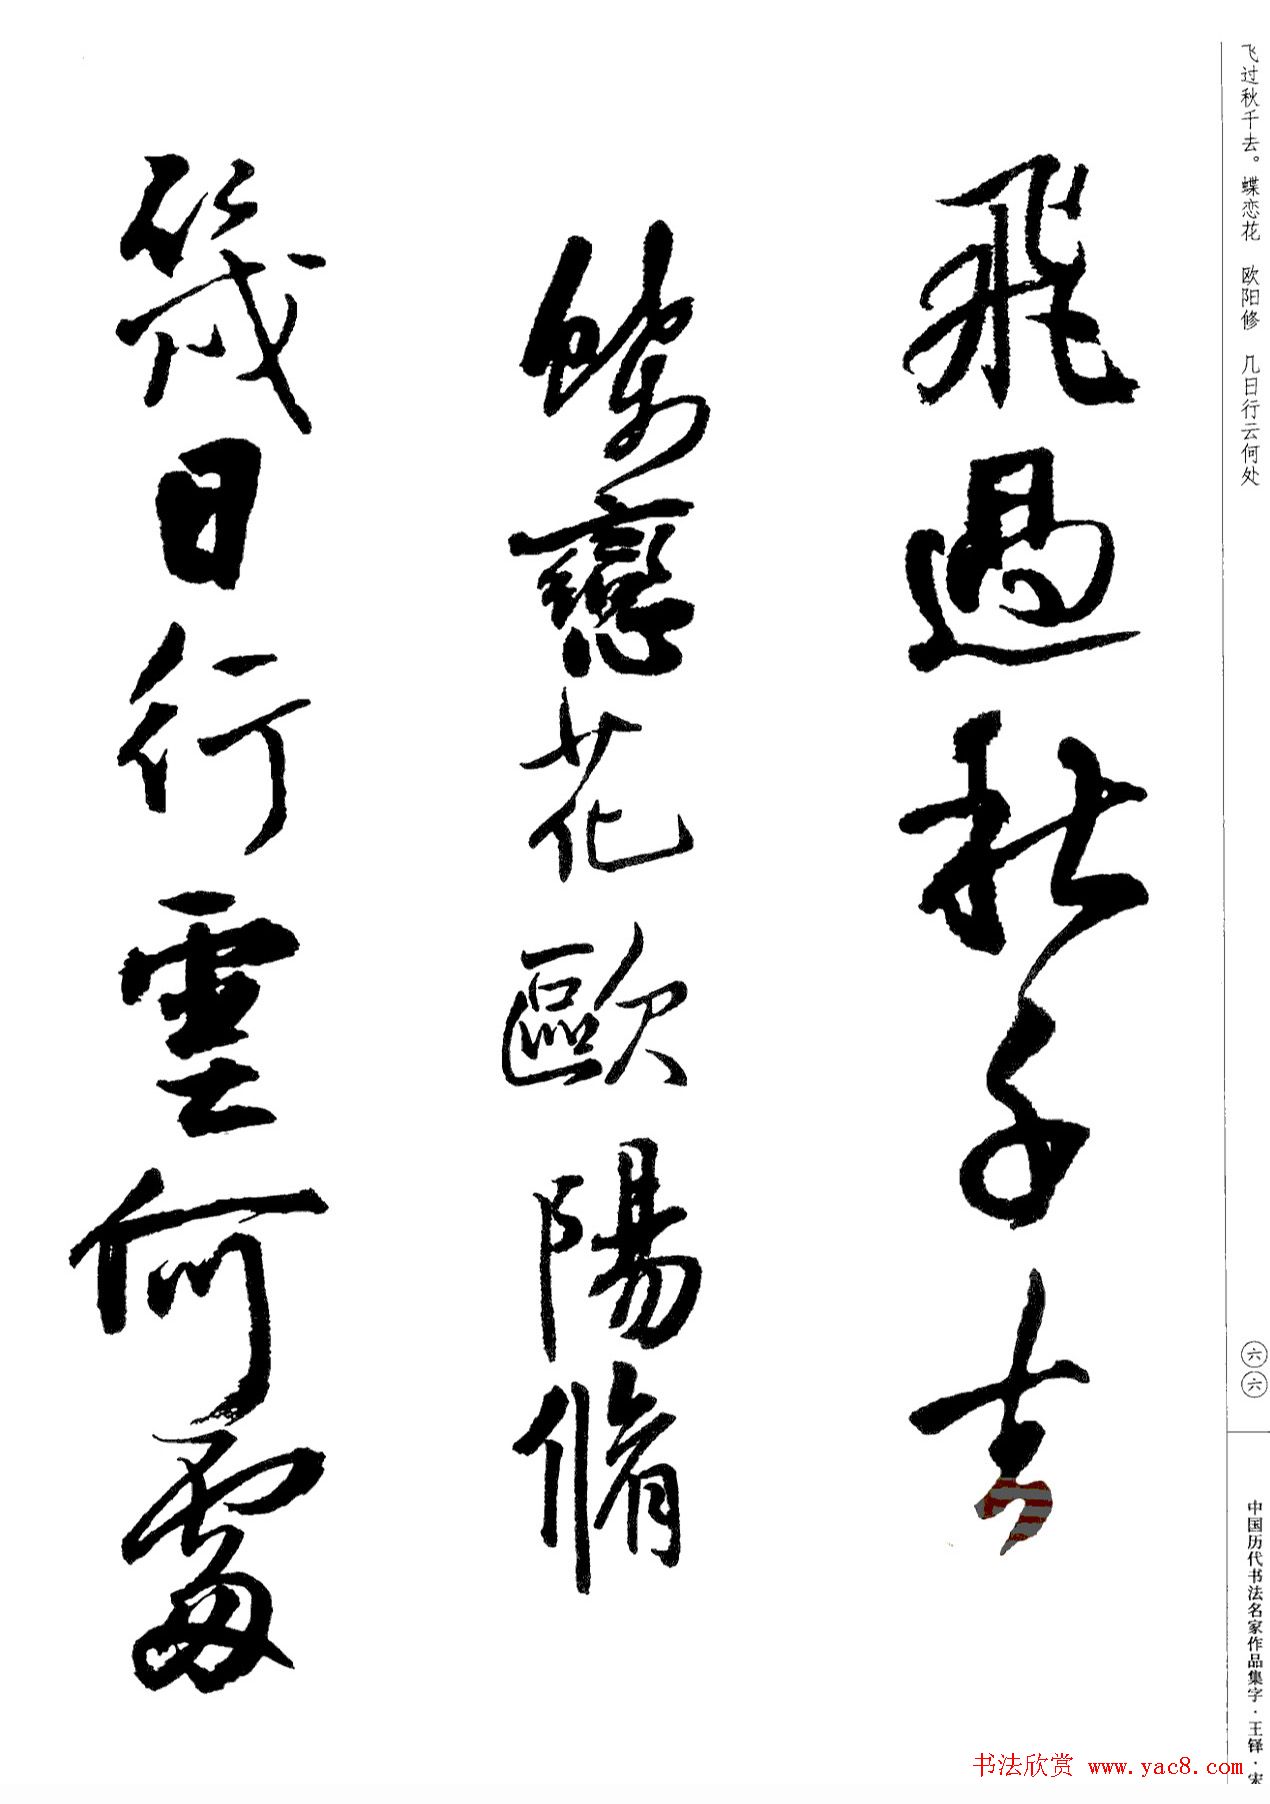 飞过秋千去。蝶恋花　欧阳修　几日行云何处
飛過秋千去
蝶戀花歐陽脩
幾日行雲何處
六六
中国历代书法名家作品集字·王铎·宋
书法欣赏 www.yac8.com